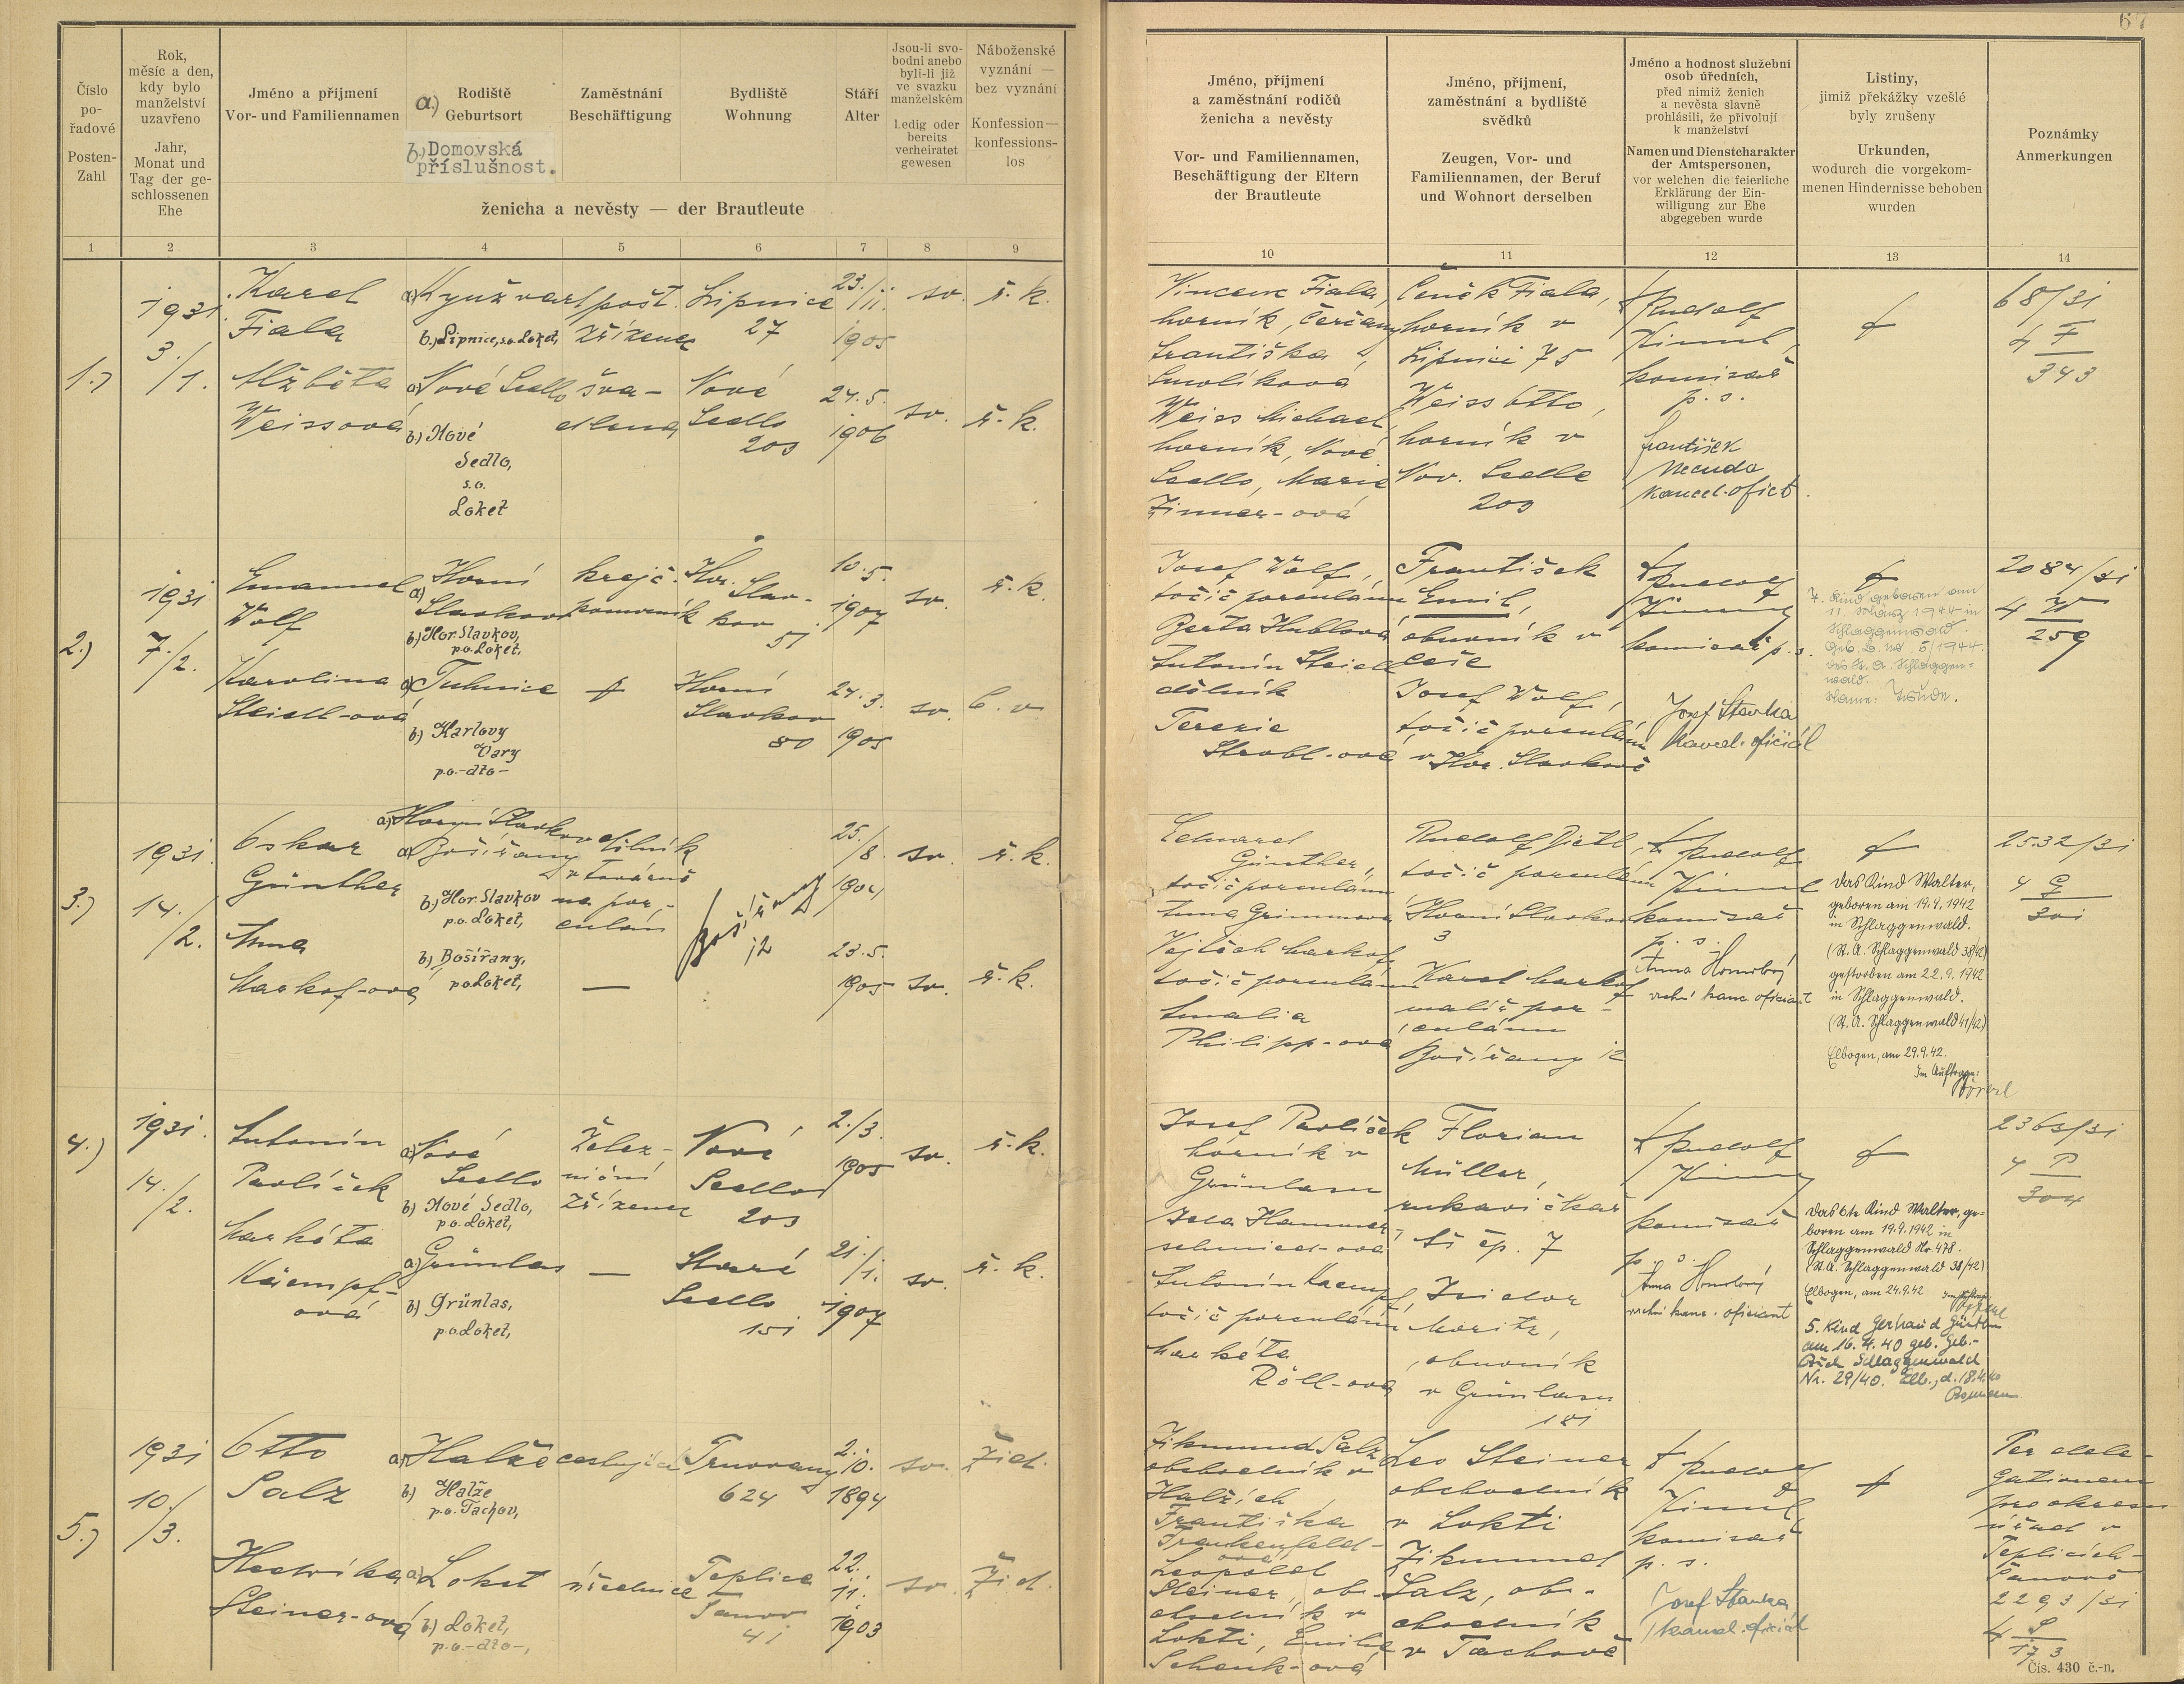 67
Číslo
po-
řadové
Posten-
Zahl
Rok,
měsíc a den,
kdy bylo
manželství
uzavřeno
Jahr,
Monat und
Tag der ge-
schlossenen
Ehe
Jméno a příjmení
Vor- und Familiennamen
a.) Rodiště
Geburtsort
b.) Domovská
příslušnost.
Zaměstnání
Beschäftigung
Bydliště
Wohnung
Stáří
Alter
Jsou-li svo-
bodni anebo
byli-li již
ve svazku
manželském
Ledig oder
bereits
verheiratet
gewesen
Náboženské
vyznání —
bez vyznání
Konfession—
konfessions-
los
ženicha a nevěsty — der Brautleute
Jméno, příjmení
a zaměstnání rodičů
ženicha a nevěsty
Vor- und Familiennamen,
Beschäftigung der Eltern
der Brautleute
Jméno, příjmení,
zaměstnání a bydliště
svědků
Zeugen, Vor- und
Familiennamen, der Beruf
und Wohnort derselben
Jméno a hodnost služební
osob úředních,
před nimiž ženich
a nevěsta slavně
prohlásili, že přivolují
k manželství
Namen und Dienstcharakter
der Amtspersonen,
vor welchen die feierliche
Erklärung der Ein-
willigung zur Ehe
abgegeben wurde
Listiny,
jimiž překážky vzešlé
byly zrušeny
Urkunden,
wodurch die vorgekom-
menen Hindernisse behoben
wurden
Poznámky
Anmerkungen
1 2 3 4 5 6 7 8 9
10 11 12 13 14
1.)
1931
3./1.
Karel
Fiala
a) Kynžvart
b.) Lipnice, s.o. Loket,
pošt.
zřízenec
Lipnice
27
23./11.
1905
sv.
ř. k.
Alžběta
Weissová
a) Nové Sedlo
b.) Nové
Sedlo,
s.o.
Loket
šva-
dlena
Nové
Sedlo
203
24.5.
1906
sv.
ř. k.
Vincenc Fiala,
horník, Čerčany
Františka
Smolíková
Weiss Michael,
horník, Nové
Sedlo, Marie
Zinner-ová
Čeněk Fiala,
horník v
Lipnici 75
Weiss Otto,
horník v
Nov. Sedle
203
Rudolf
komisař
p. s.
František
Necuda
kancel. ofict.
68/31
4 F
343
2.)
1931
7./2.
Emanuel
Wolf
a) Horní
Slavkov
b.) Hor. Slavkov,
p.o. Loket,
krejč.
pomocník
Hor. Slav-
kov
51
10.5.
1907
sv.
ř. k.
Karolina
Steidl-ová
a) Tuhnice
b) Karlovy
Vary
p.o.-dto-
Horní
Slavkov
80
24.3.
1905
sv.
b. v
Josef Wolf,
točič porculánu
Berta Hublová
Antonín Steidl
dělník
Terezie
Strobl-ová
František
Emil,
obuvník v
Josef Wolf,
točič porculánu
v Hor. Slavkově
Rudolf
komisař p. s.
Josef Stavka
kancel. oficiál
7. Kind geboren am
11. März 1944 in
Schlaggenwald.
Geb. B. Nr. 5/1944.
des St. A. Schlaggen-
wald.
Name: Traude.
2084/31
4 W
259
3.)
1931
14./2.
Oskar
Günther
a) Horní Slavkov
b.) Hor. Slavkov
p.o. Loket,
dělník
v továrně
na por-
culán
25./8.
1904
sv.
ř. k.
Anna
Markof-ová
a) Bošířany
b) Bošířany,
p.o. Loket,
—
Bošířany
12
23.5.
1905
sv.
ř. k.
Eduard
Günther,
točič porculánu
Anna Grimmová
Vojtěch Markof,
točič porculánu
Amalia
Philipp-ová
Rudolf Dietl,
točič porculánu
Horní Slavkov
3
Karel Markof
malíř por-
culánu
Bošířany 12
Rudolf
komisař
p. s.
Anna
vrchní kanc. oficiant
Das Kind Walter,
geboren am 19.9.1942
in Schlaggenwald.
(St. A. Schlaggenwald 38/42)
gestorben am 22.9.1942
in Schlaggenwald.
(St. A. Schlaggenwald 41/42)
Elbogen, am 29.9.42.
Im Auftrage:
2532/31
4 G
301
4.)
1931.
14./2.
Antonín
Pavlíček
a) Nové
Sedlo
b) Nové Sedlo,
p.o. Loket,
Želez-
niční
zřízenec
Nové
Sedlo
203
2./3.
1905
sv.
ř. k.
Markéta
Kaempf-
ová
a.) Grünlas
b) Grünlas,
p.o. Loket,
—
Staré
Sedlo
151
21./1.
1907
sv.
ř. k.
Josef Pavlíček
horník v
Grünlasu
Hammer-
schmied-ová
Antonín Kaempf,
točič porculánu
Markéta
Röll-ová
Florian
Müller,
rukavičkář
čp. 7
Isidor
Moritz,
obuvník
v Grünlasu
181
Rudolf
komisař
p. s.
Anna
vrchní kanc. oficiant
Das 6te Kind Walter, ge-
boren am 19.9.1942 in
Schlaggenwald Nr. 478.
(St. A. Schlaggenwald 38/42)
Elbogen, am 24.9.42
Im Auftrage
5. Kind Gerhard Günther
am 16.4.40 geb. Geb.-
Buch Schlaggenwald
Nr. 29/40. Elb., d. 18.4.40
2363/31
4 P
304
5.)
1931
10./3.
Otto
Salz
a) Halže
b) Halže
p.o. Tachov,
cestující
Trnovany
624
2./10.
1894
sv.
žid.
Hedvika
Steiner-ová
a) Loket
b) Loket,
p.o.-dto-,
úřednice
Teplice
Šanov
41
22.
11.
1903
sv.
žid.
Zikmund Salz
obchodník v
Halžích,
Františka
Frankenfeld-
ová
Leopold
Steiner, ob-
chodník v
Lokti, Emilie
Schenk-ová
Leo Steiner
obchodník
v Lokti
Zikmund
Salz, ob-
chodník
v Tachově
Rudolf
komisař
p. s.
Josef Stavka
kancel. oficiál
Per dele-
gationem
pro okresní
úřad v
Teplicích-
Šanově
2293/31
4 S
173
Čís. 430 č.-n.